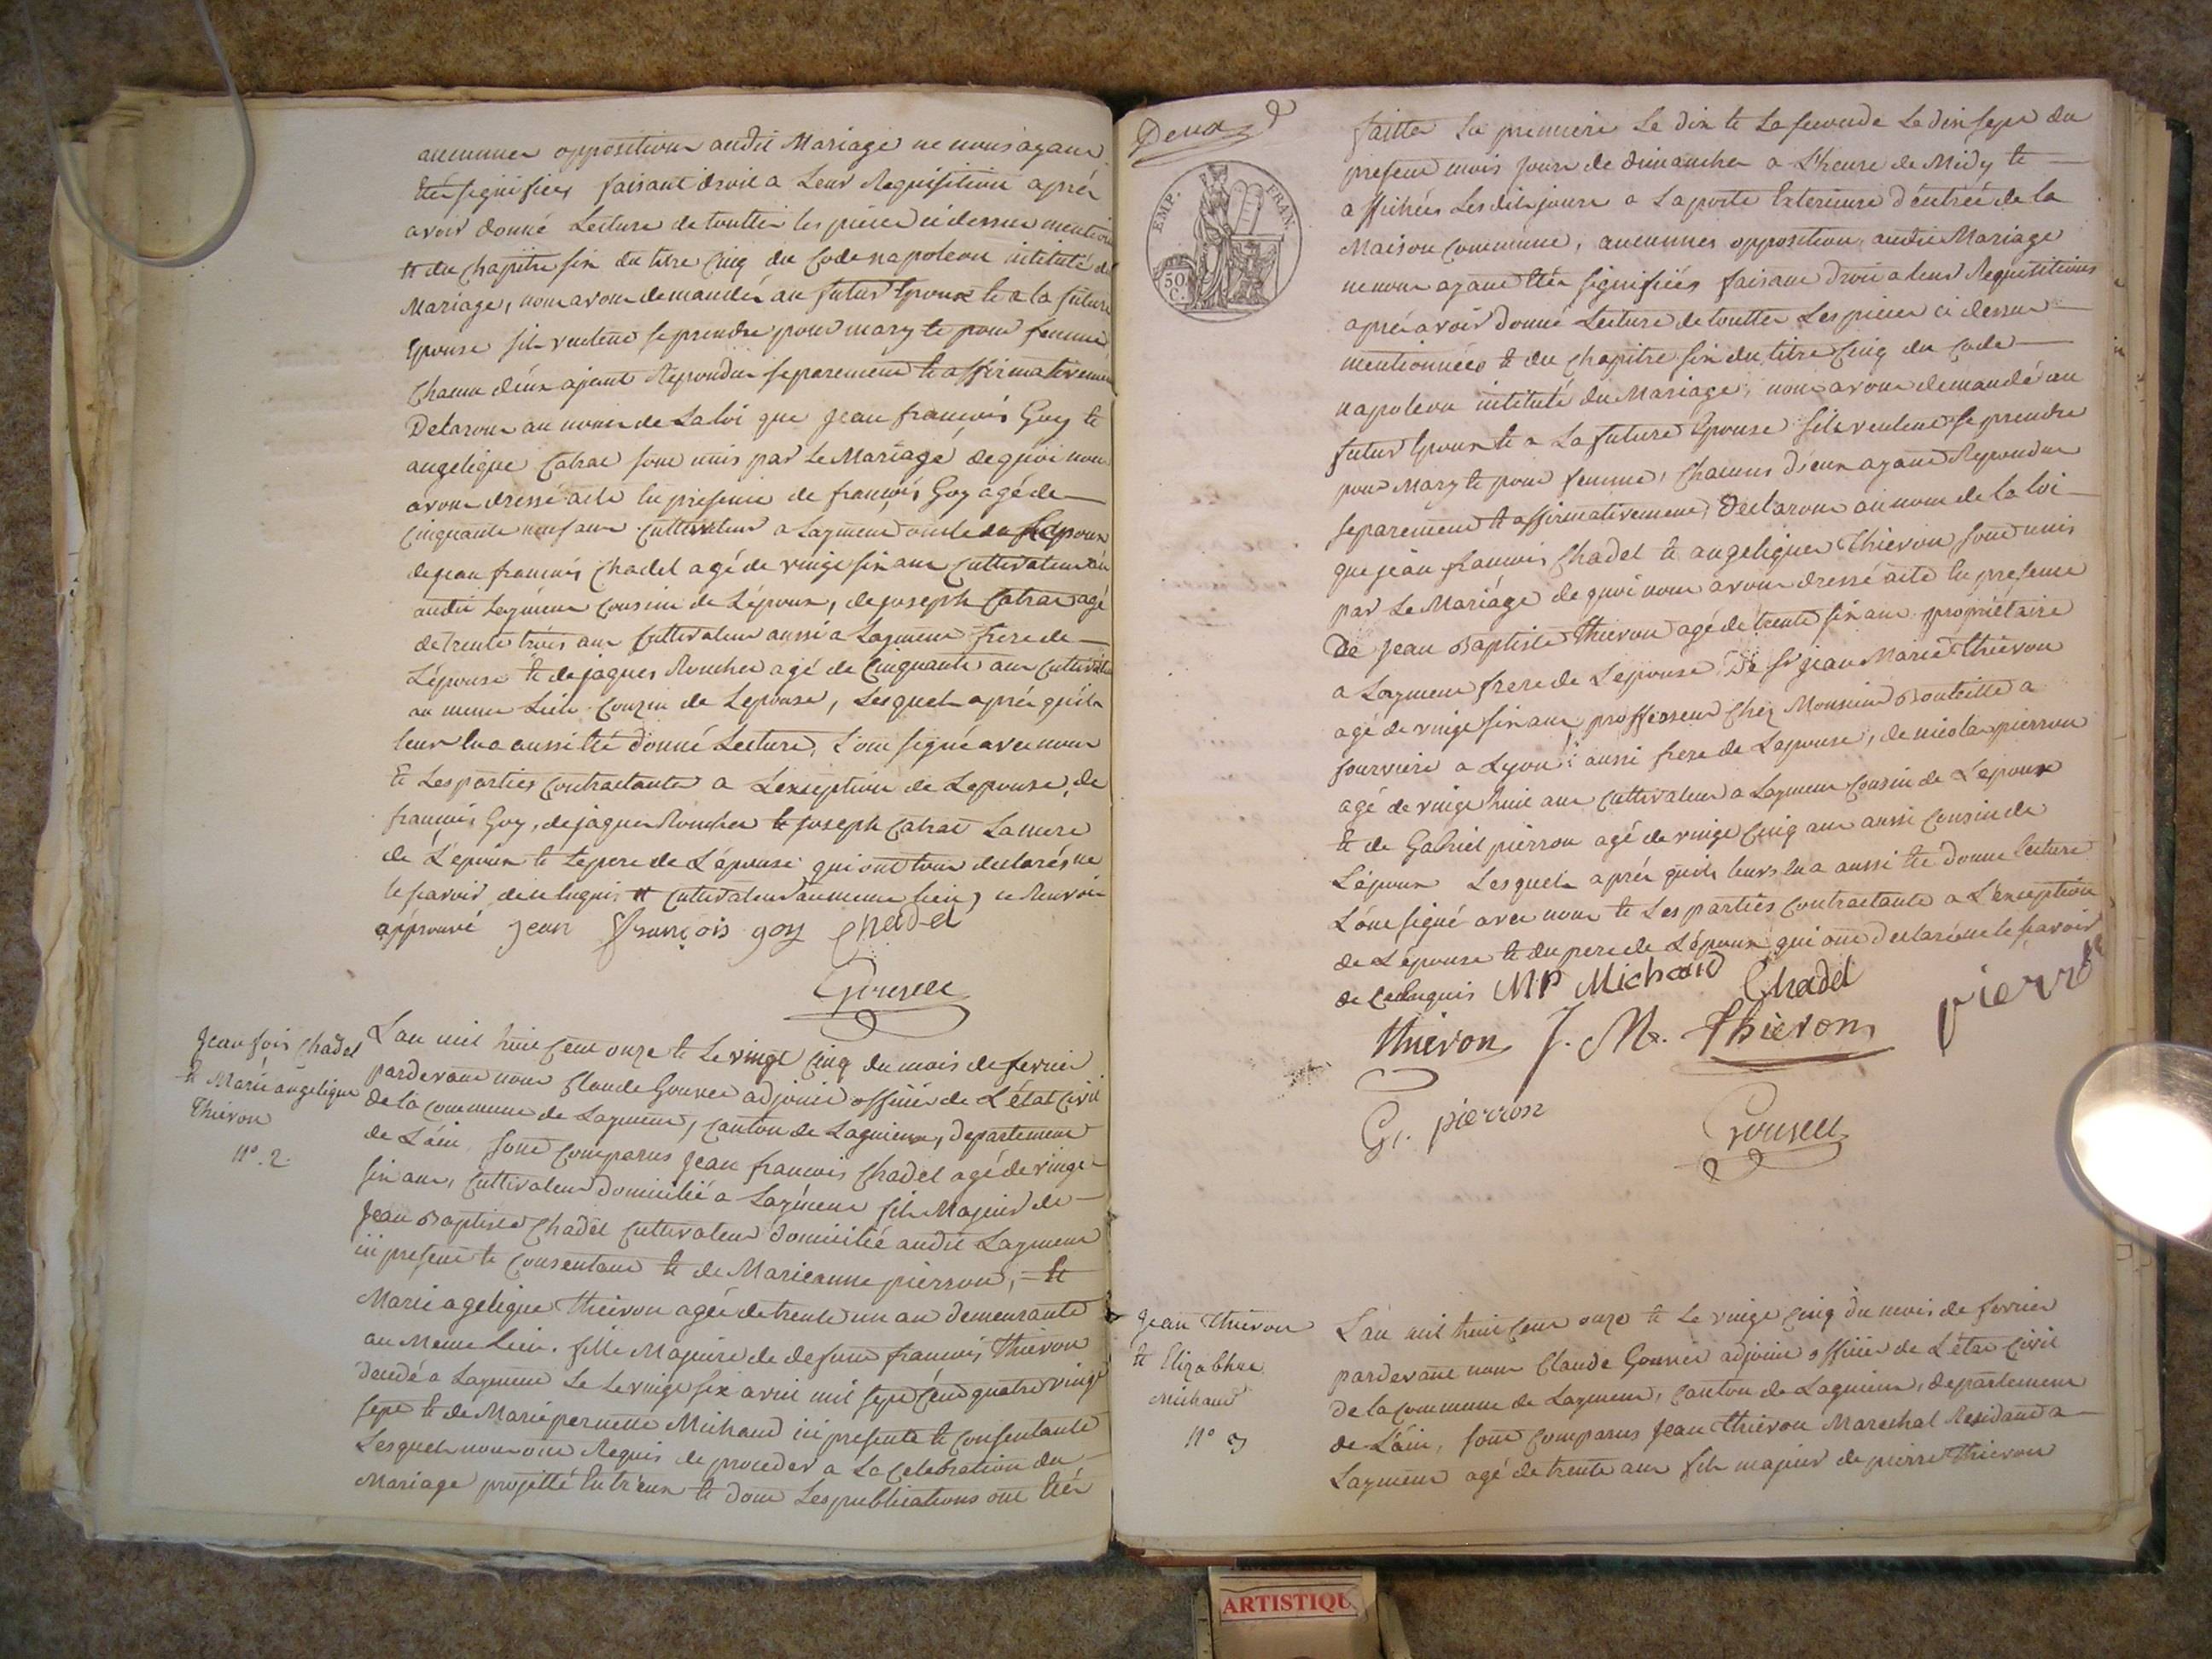 aucunnes oppositions audit Mariage ne nous ayant
été signifiées faisant droit a Leur Requisition aprés
avoir donné Lecture de touttes les piéces ci dessus mention
et du chapitre six du titre Cinq du Code napoleon intitulé du
Mariage, nous avons demandés au futur Epoux et a la future
Epouse sils veulent se prendre pour mary et pour femme
Chacun d'eux ajant Repondu separement et affirmativement
Declarons au nom de La loi que Jean françois Goy et
angelique Catrat sont unis par Le Mariage de quoi nous
avons dressé acte En presence de françois Goy agé de
Cinquante neuf ans Cultivateur a Layment oncle de Epoux
de jean françois Chadel agé de vingt six ans Cultivateur
audit Layment Cousin de L'époux, de joseph Catrat agé
de trente trois ans Cultivateur aussi a Layment frere de
L'épouse et de jaques Roucher agé de Cinquante ans Cultivateur
au meme Lieu Couzin de Lepouse, Lesquels aprés qu'il
leur En a aussi été donné Lecture, L'ont signé avec nous
et Les parties Contractantes a L'exception de Lepouse, de
françois Goy, de jaques Roucher et joseph Catrat La mere
de L'époux et Le pere de L'épouse qui ont tous declarés ne
le savoir de ce Enquis Cultivateur au meme lieu, ce Renvoi
approuvé Jean François goy Chadel
Gouvee
Jean fois Chadel
et Marie angelique
Thievon
n°. 2.
L'an mil huit Cent onze et Le vingt Cinq du mois de fevrier
pardevant nous Claude Gouvee adjoint officier de L'état Civil
de la Commune de Layment, Canton de Lagnieux, departement
de L'ain, sont Comparus Jean francois Chadel agé de vingt
six ans, Cultivateur domicilié a Layment fils Majeur de
Jean Baptiste Chadel Cultivateur domicilié audit Layment
ici present et Consentant et de Marieanne pierron, et
Marie agelique Thievon agée de trente un an demeurante
au Meme Lieu. fille Majeure de defunt francois Thievon
decedé a Layment Le Le vingt six avril mil sept Cent quatre vingt
sept et de Marie pernette Michaud ici presente et Consentante
Lesquels nous ont Requis de proceder a La Celebration du
Mariage projetté Entr'eux et dont Les publications ont été
Deux
EMP. FRAN.
50 C.
faittes La premiere Le dix et La seconde Le dix sept du
present mois jours de dimanches a L'heure de Midy et
affichées Lesdits jours a La porte Exterieure d'éntrée de la
Maison Commune, aucunnes opposition audit Mariage
ne nous ayant été signifiées faisant droit a leur Requisitions
aprés avoir donné Lecture de touttes Les pieces ci dessus
mentionnées et du chapitre six du titre Cinq du Code
napoleon intitulé du Mariage, nous avons demandé au
futur Epoux et a La future Epouse sils veulent se prendre
pour Mary et pour femme, Chacuns d'eux ayant Repondu
separement et affirmativement, Declarons au nom de La loi
que jean francois Chadel et angelique Thievon sont unis
par Le Mariage de quoi nous avons dressé acte En presence
De Jean Baptiste Thievon agé de trente six ans propriétaire
a Layment frere de L'epouse De Sr jean Marie Thievon
agé de vingt six ans proffesseur Chez Monsieur Bouteille a
fourviere a Lyon aussi frere de Lepouse, de nicolas pierron
agé de vingt huit ans Cultivateur a Layment Cousin de L'époux
et de Gabriel pierron agé de vingt Cinq ans aussi Cousin de
L'époux Lesquels aprés qu'ils leurs En a aussi été donné Lecture
L'ont signé avec nous et Les parties Contractantes a L'exception
de L'épouse et du pere de L'époux qui ont declarés ne le savoir
de ce Enquis MP Michaud Chadel
thievon J. M. Thievon pierron
G. pierron Gouvee
Jean Thievon
et Elizabhet
Michaud
n° 3
L'an mil huit Cent onze et Le vingt Cinq du mois de fevrier
pardevant nous Claude Gouvee adjoint officier de L'état Civil
de la Commune de Layment, Canton de Lagnieux, departement
de L'ain, sont Comparus Jean Thievon Marechal Residand a
Layment agé de trente ans fils majeur de pierre Thievon
ARTISTIQU